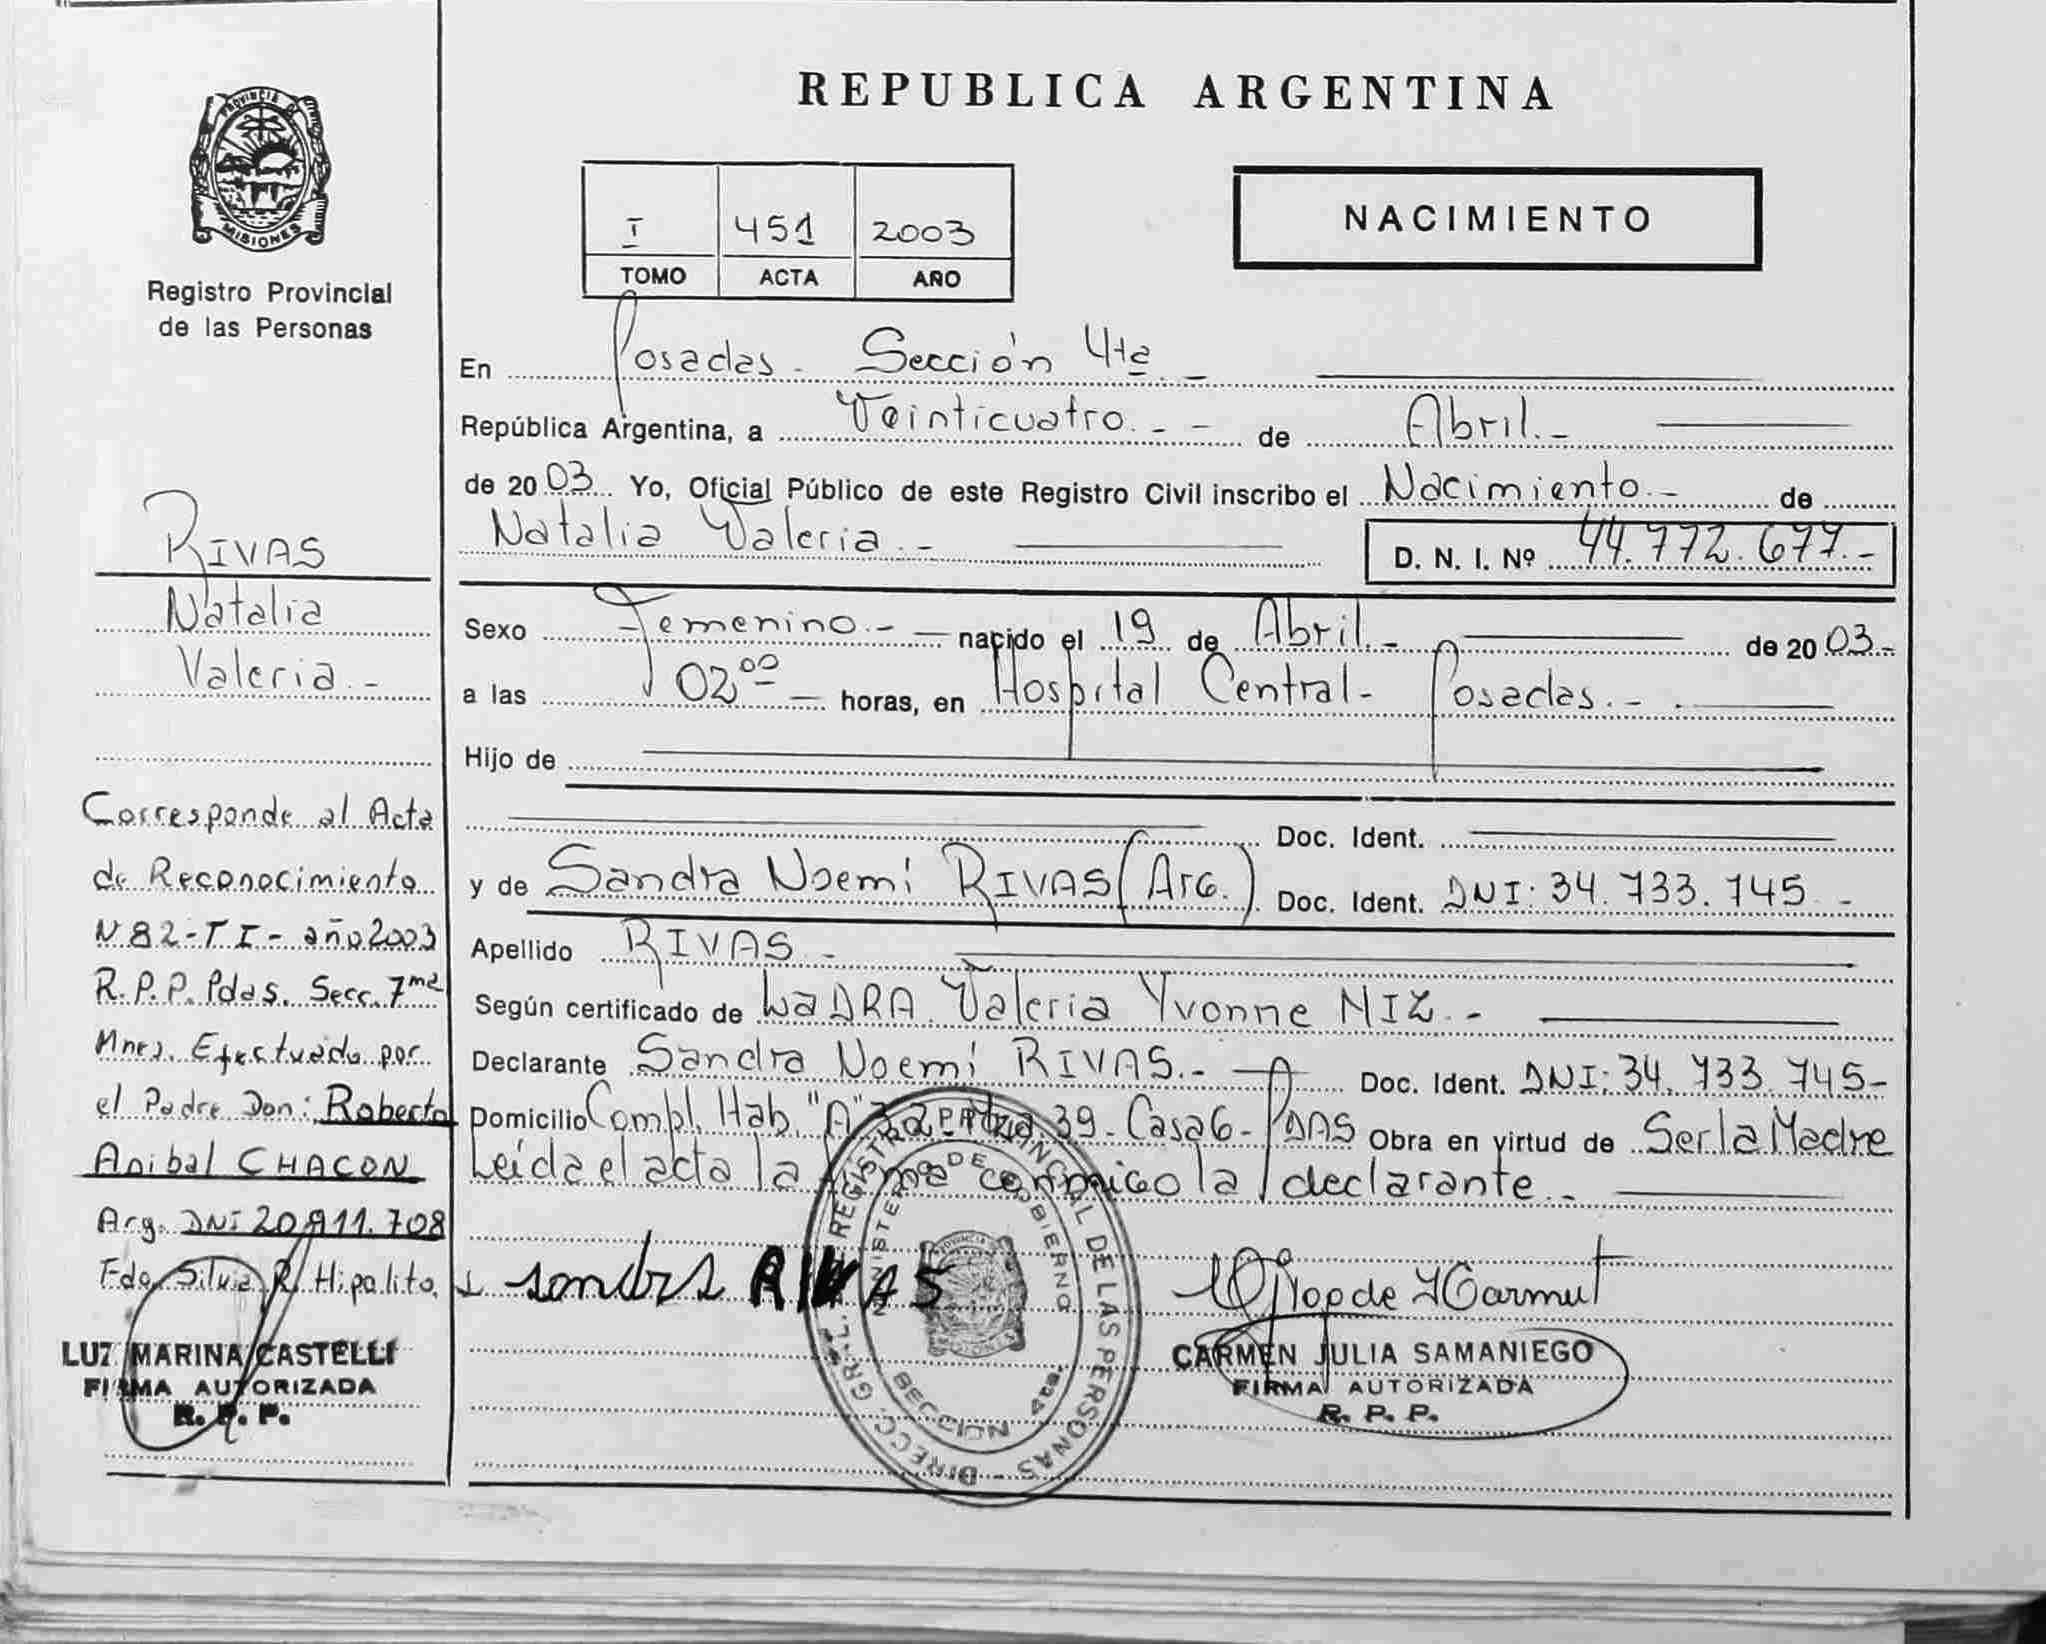 REPUBLICA ARGENTINA
PROVINCIA DE
MISIONES
Registro Provincial
de las Personas
I 451 2003
TOMO ACTA AÑO
NACIMIENTO
En Posadas - Sección 4ta -
República Argentina, a Veinticuatro. - - de Abril. -
de 2003 Yo, Oficial Público de este Registro Civil inscribo el Nacimiento - de
Natalia Valeria. - D. N. I. Nº 44.772.677. -
Sexo Femenino. - nacido el 19 de Abril. - de 2003. -
a las 02 00 - horas, en Hospital Central - Posadas. -
Hijo de
Doc. Ident.
y de Sandra Noemí RIVAS (Arg.) Doc. Ident. DNI: 34.733.745 -
Apellido RIVAS -
Según certificado de LaDRA. Valeria Yvonne MIZ. -
Declarante Sandra Noemí RIVAS. - Doc. Ident. DNI: 34.733.745 -
Domicilio Compl. Hab. "A" 39 - Casa 6 - PDAS Obra en virtud de Ser la Madre
Leída el acta la firma conmigo la declarante. -
sandra RIVAS
CARMEN JULIA SAMANIEGO
FIRMA AUTORIZADA
R. P. P.
DIRECC. GRAL. REGISTRO PROVINCIAL DE LAS PERSONAS -
MINISTERIO DE GOBIERNO
SECCION 4ta.
RIVAS
Natalia
Valeria. -
Corresponde al Acta
de Reconocimiento
N 82 - T I - año 2003
R.P.P. Pdas. Secc. 7ma
Mnes. Efectuado por
el Padre Don: Roberto
Anibal CHACON
Arg. DNI 20.911.708
Fdo. Silvia R. Hipolito.
LUZ MARINA CASTELLI
FIRMA AUTORIZADA
R. P. P.